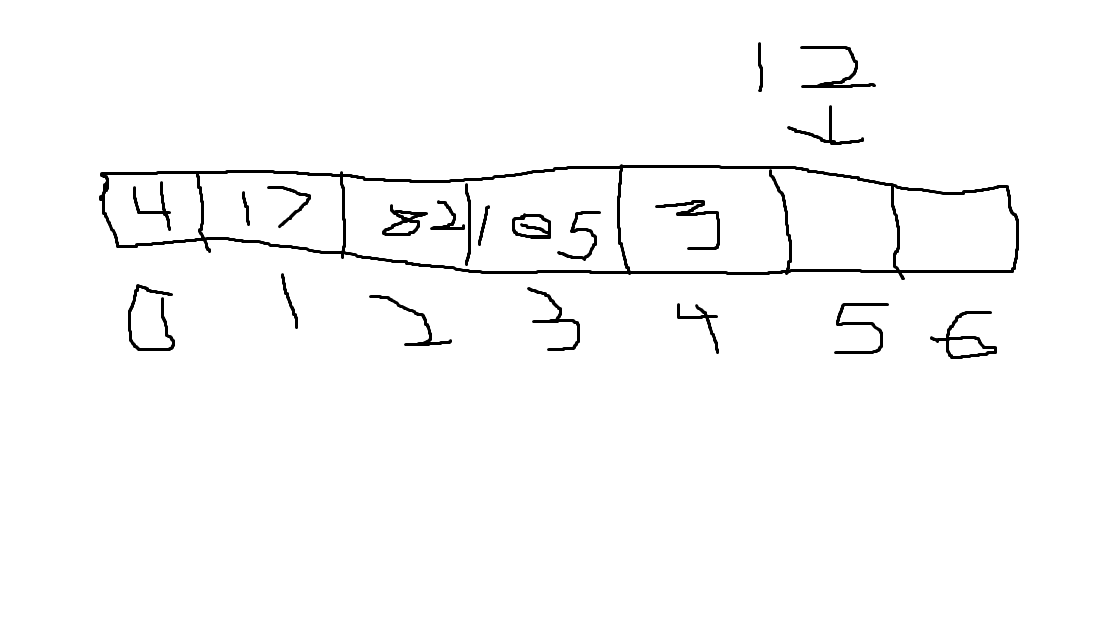 12
4 17 82 105 3
0 1 2 3 4 5 6